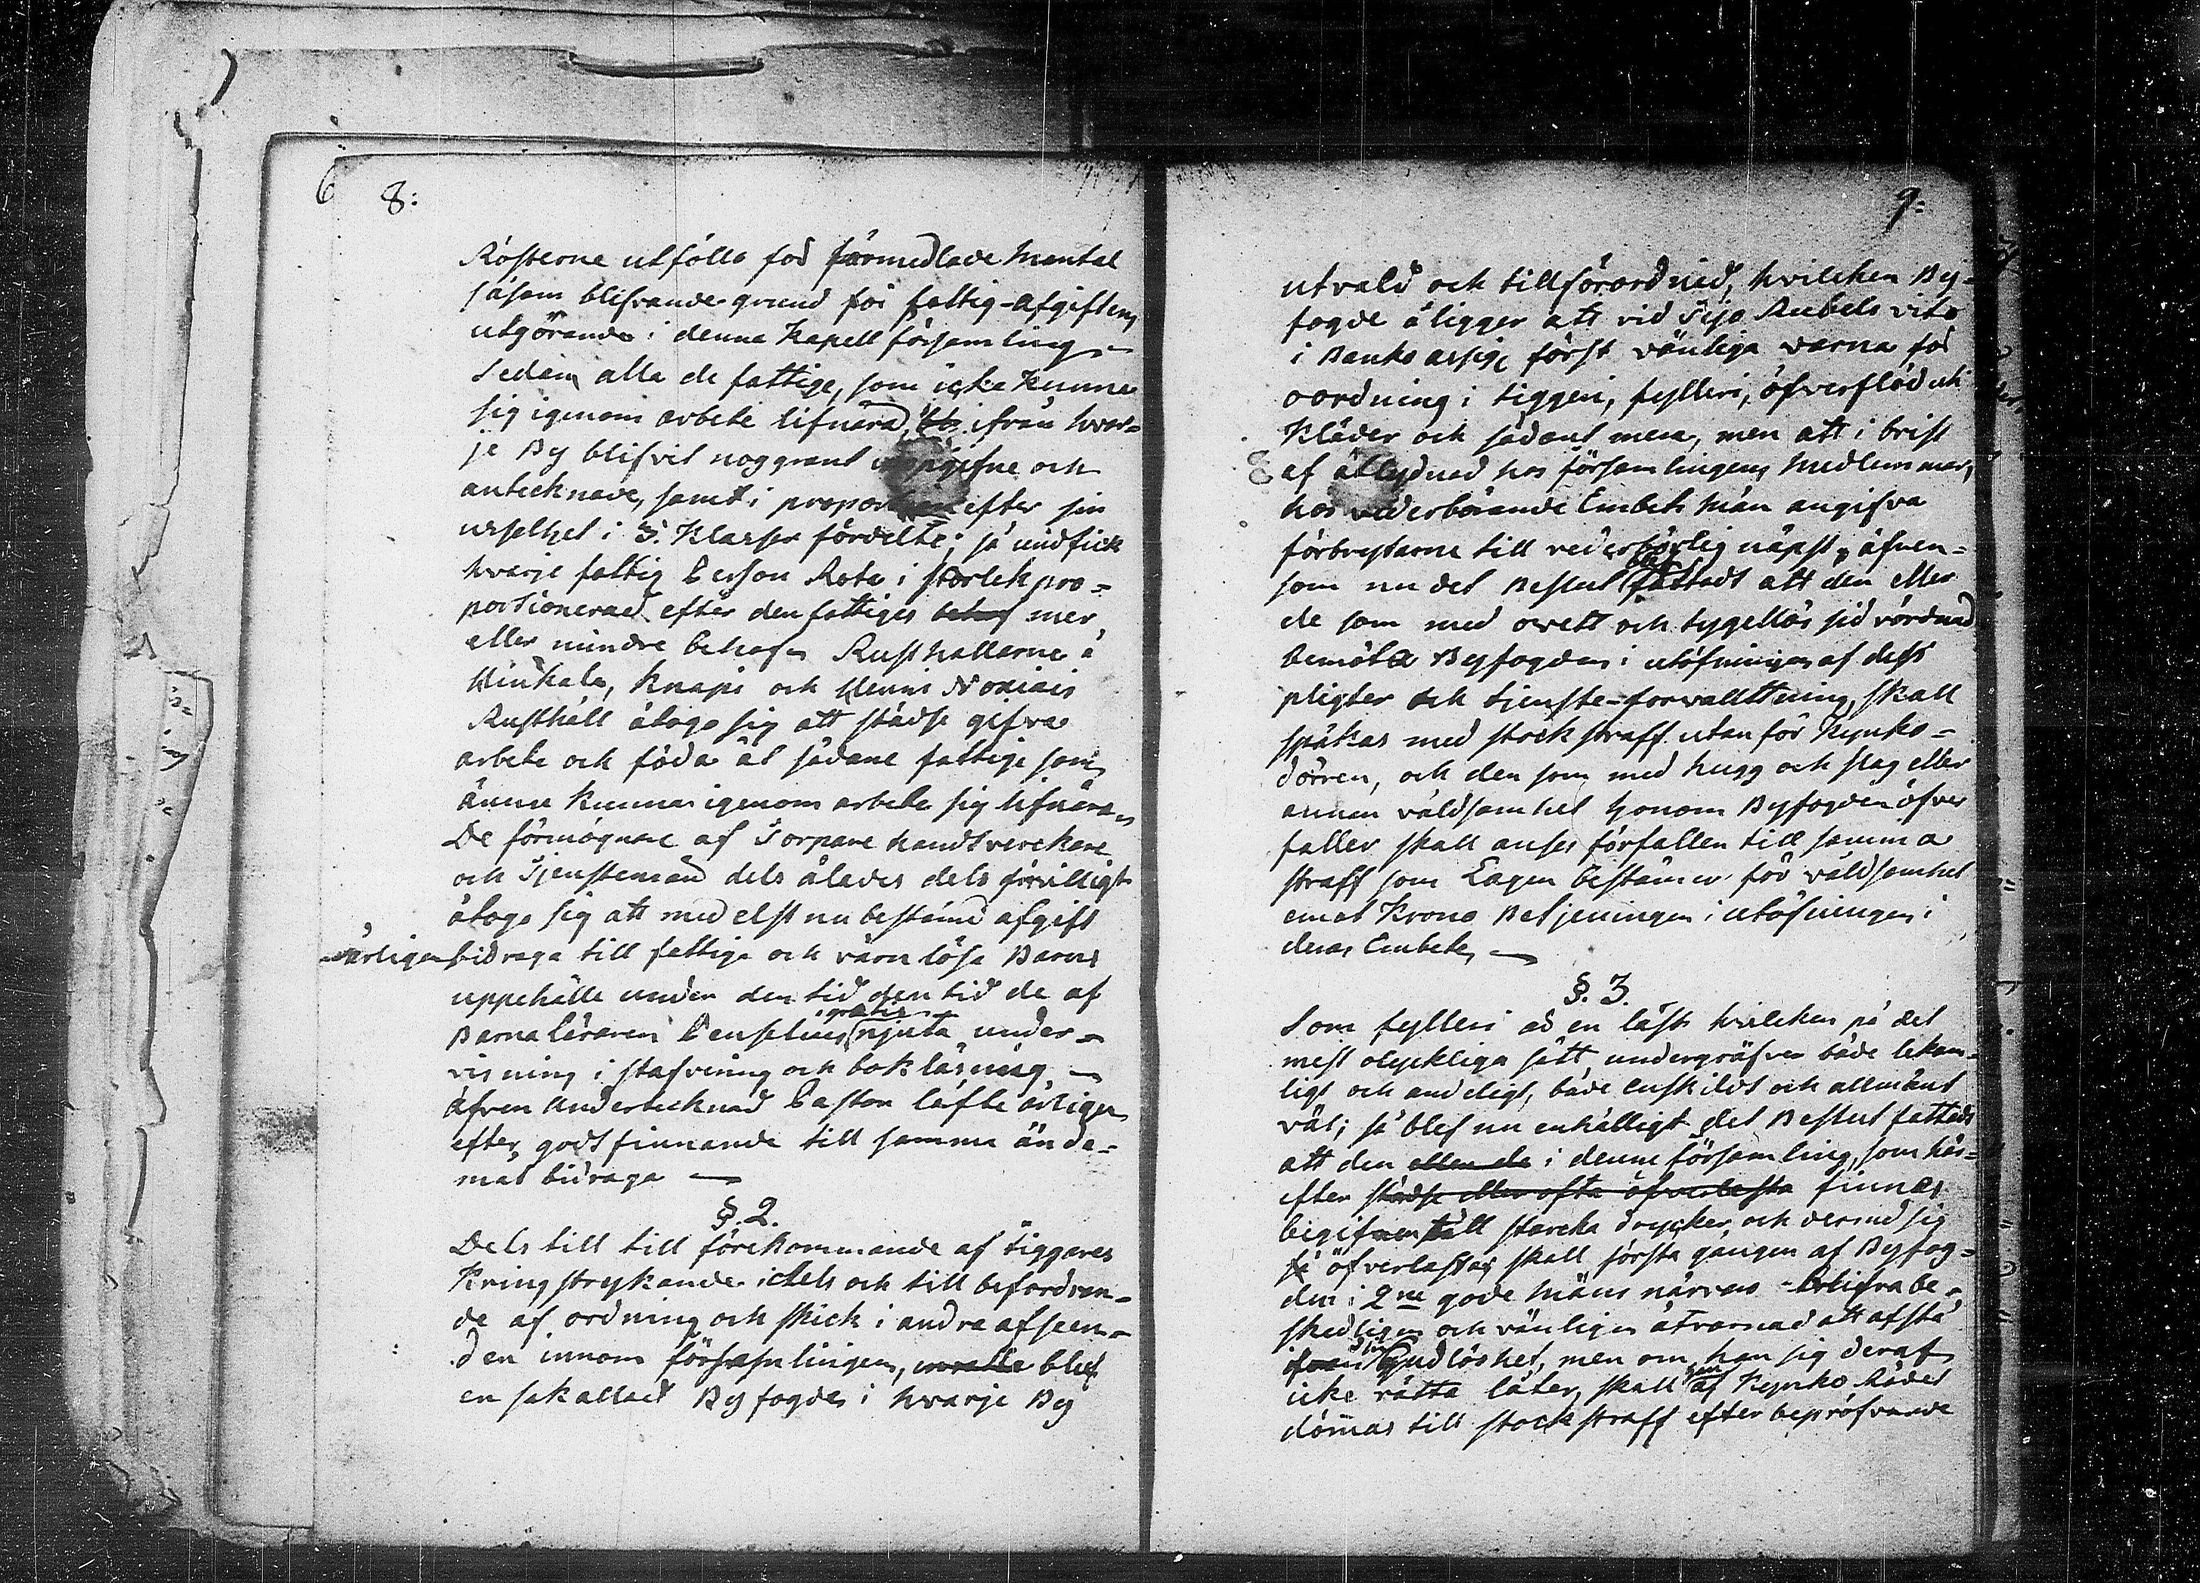 6 8:
Rösterne utfölla för förmedlade Mantal
såsom blifvande grund för fattig-afgiftens
utgörande i denna Kapell församling –
Sedan alla de fattige, som icke kunna
sig igenom arbete lifnära, ifrån hvar=
je By blifvit noggrant uppgifne och
antecknade, samt i proportion efter sin
uselhet i 3. Klasser fördelte; så undfick
hvarje fattig Person Rote i storlek pro=
portionerad efter den fattiges behof mer
eller mindre behof – Rusthållarne å
Hinkala, Knapi och Henns Noxiais
Rusthåll åtogo sig att städse gifva
arbete och föda åt sådane fattige som
ännu kunna igenom arbete sig lifnära –
De förmögnare af Torpare handtverckare
och Tjenstemän dels ålades dels frivilligt
åtogo sig att medelst nu bestämd afgift
årligen bidraga till fattige och värnlösa Barns
uppehälle under den tid den tid de af
gratis
Barnaläraren Penselius njuta under=
visning i stafvning och bokläsning –
äfven Undertecknad Pastor låfte årligen
efter godtfinnande till samma ända=
mål bidraga –
§. 2.
Dels till till förekommande af tiggares
Kringstrykande dels och till befordran=
de af ordning och skick i andra afseen=
den innom församlingen, blef
en så kallad Byfogde i hvarje By
9:
utvald och tillförordnad, hvilcken By=
fogde åligger att vid Tijo Rubels vite
i Banko assign. först vänliga varna för
oordning i tiggeri, fylleri, öfverflöd uti
Kläder och sådant mera, men att i brist
af åtlydnad hos församlingens medlemmar,
hos vederbörande Embets män angifva
förbrytarne till vederbörlig näpst, äfven=
blef
som nu det Beslut fattadt att den eller
de som med ovett och tygellös sidvördnad
bemöta Byfogden i utöfningen af dess
pligter och tjenste-forvalltning, skall
späkas med stockstraff utanför Kyrko=
dörren, och den som med hugg och slag eller
annan våldsamhet honom Byfogden öfver
faller skall anses förfallen till samma
straff som Lagen bestämer för våldsamhet
emot Krono Betjeningen i utöfningen i
deras Embete, –
§. 3.
Som fylleri är en last hvilcken på det
mest olyckliga sätt undergräfver både lekam=
ligt och andeligt, både enskildt och allmänt
väl; så blef nu enhälligt det Beslut fattadt
att den eller de i denna församling, som här=
efter städse eller ofta öfverlasta finnas
begifven till starcka drycker, och dermed sig
så öfverlastar skall första gången af Byfog=
den i 2ne gode Mäns närvaro blifva be=
skedligen och vänligen åtvarnad att afstå
ifrån sin Gudlöshet, men om han sig deraf
icke rätta låter, skall af Kyrko Rådet
dömas till stockstraff efter beprofvande